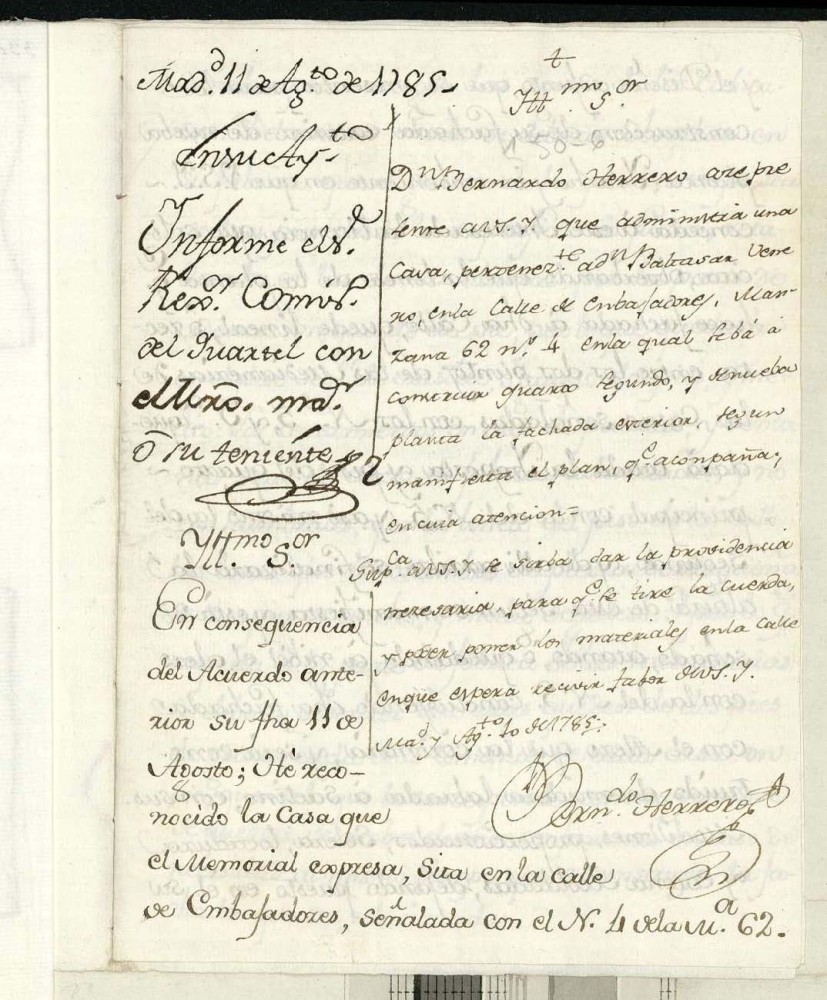 Mad.d 11 de Ag.to de 1785.
En su Ay.to
Informe el S.r
Rex.or Comis.o
del Quartel con
el Mro. ma.r
ô su teniente
+
Ill.mo S.or
D.n Bernardo Herrero, a repre
sente a V.S.Y. que administra una
Casa, pertenez.te a d.n Baltasar Vene
ro, en la Calle de Embajadores, Man-
zana 62 n.o 4 en la qual se bá à
construir quarto segundo, y de nueba
planta la fachada exterior, segun
manifiesta el plan, q.e acompaña;
en cuia atencion=
Sup.ca a V.S.Y. se sirba dar la providencia
nezesaria, para q.e se tire la cuerda,
y poder poner los materiales en la Calle
en que espera recivir fabor de V.S.Y.
Mad. y Ag.to 10 de 1785:
Bern.do Herrero
Ill.mo S.or
En consequencia
del Acuerdo ante-
rior su fha 11 de
Agosto; Hé reco-
nocido la Casa que
el Memorial expresa, Sita en la calle
de Embajadores, señalada con el N. 4 de la M.a 62.